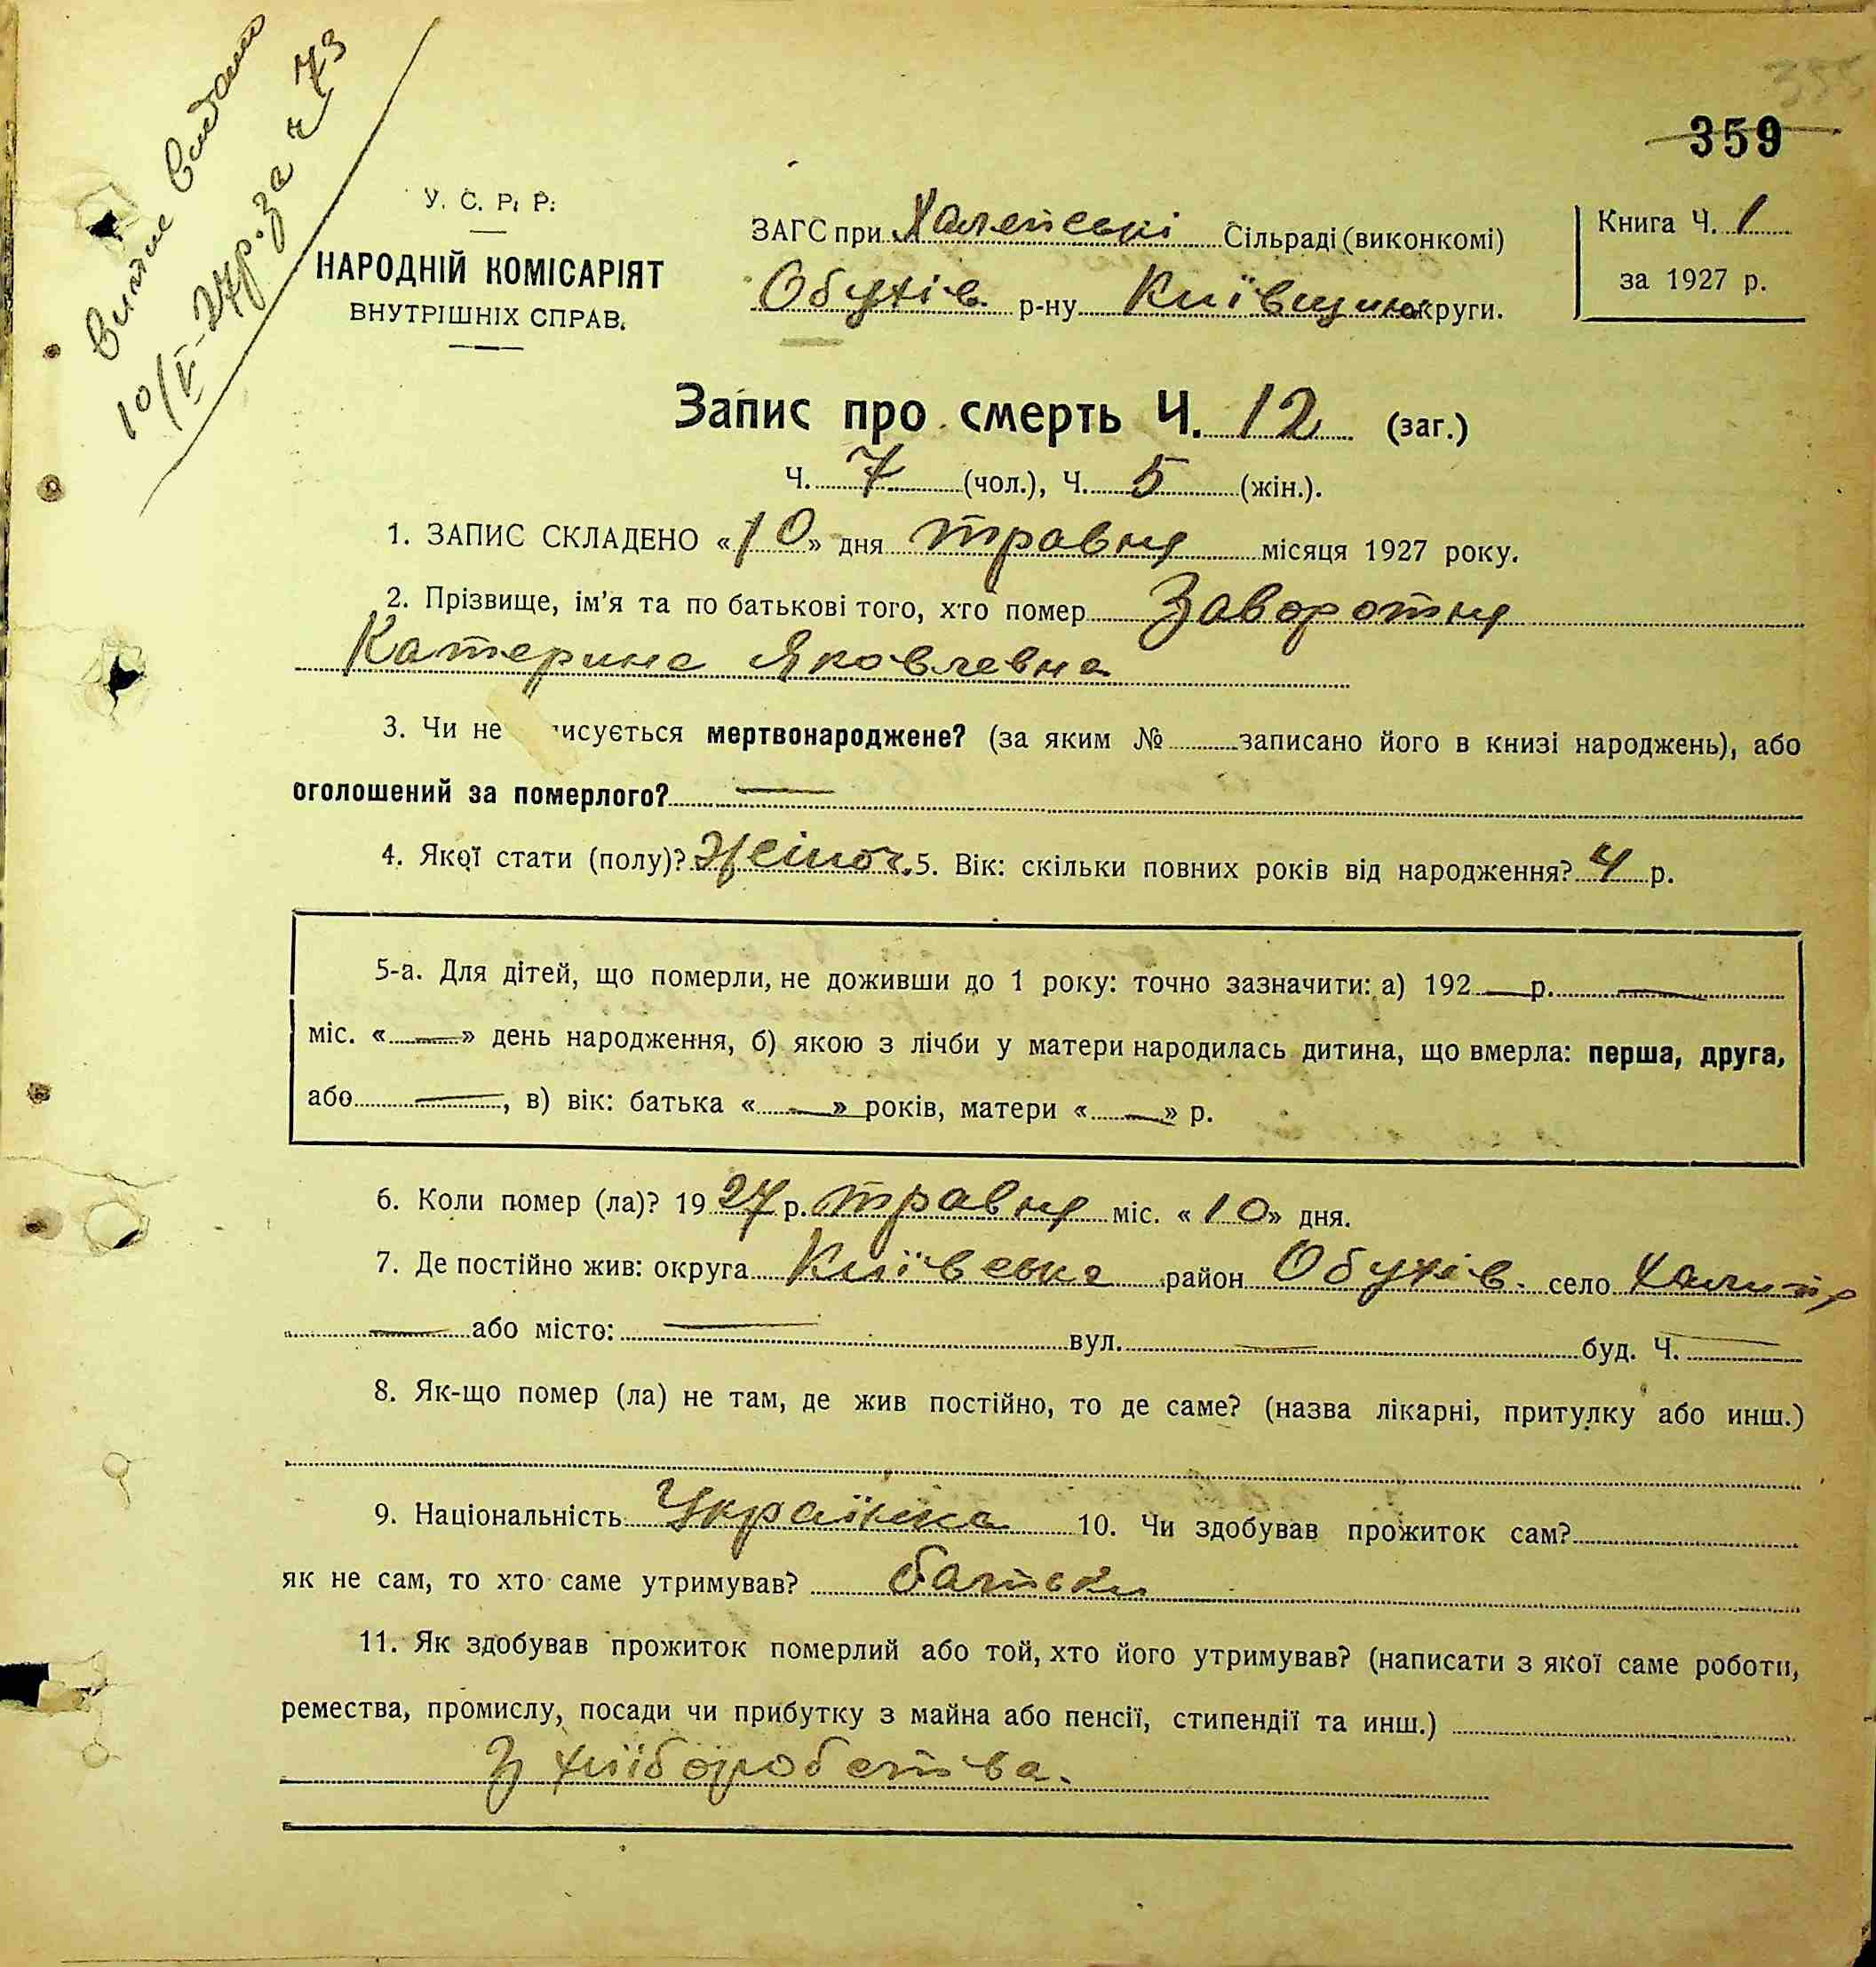 Виписи видано
10/V-27р. за ч 73
359
У. С. Р. Р.
НАРОДНІЙ КОМІСАРІЯТ
ВНУТРІШНІХ СПРАВ.
ЗАГС при Халепські Сільраді (виконкомі)
Обухів. р-ну Київщини округи.
Книга Ч. 1
за 1927 р.
Запис про смерть Ч. 12 (заг.)
Ч. 7 (чол.), Ч. 5 (жін.).
1. ЗАПИС СКЛАДЕНО «10» дня травня місяця 1927 року.
2. Прізвище, ім'я та по батькові того, хто помер Заворотня
Катерина Яковлевна
3. Чи не исується мертвонароджене? (за яким № записано його в книзі народжень), або
оголошений за померлого? —
4. Якої стати (полу)? жіноч. 5. Вік: скільки повних років від народження? 4 р.
5-а. Для дітей, що померли, не доживши до 1 року: точно зазначити: а) 192 — р. —
міс. « — » день народження, б) якою з лічби у матери народилась дитина, що вмерла: перша, друга,
або —, в) вік: батька « — » років, матери « — » р.
6. Коли помер (ла)? 1927 р. травня міс. «10» дня.
7. Де постійно жив: округа Київська район Обухів. село
— або місто: — вул. — буд. Ч. —
8. Як-що помер (ла) не там, де жив постійно, то де саме? (назва лікарні, притулку або инш.)
9. Національність Українка 10. Чи здобував прожиток сам?
як не сам, то хто саме утримував? батьки
11. Як здобував прожиток померлий або той, хто його утримував? (написати з якої саме роботи,
ремества, промислу, посади чи прибутку з майна або пенсії, стипендії та инш.)
З хліборобства.